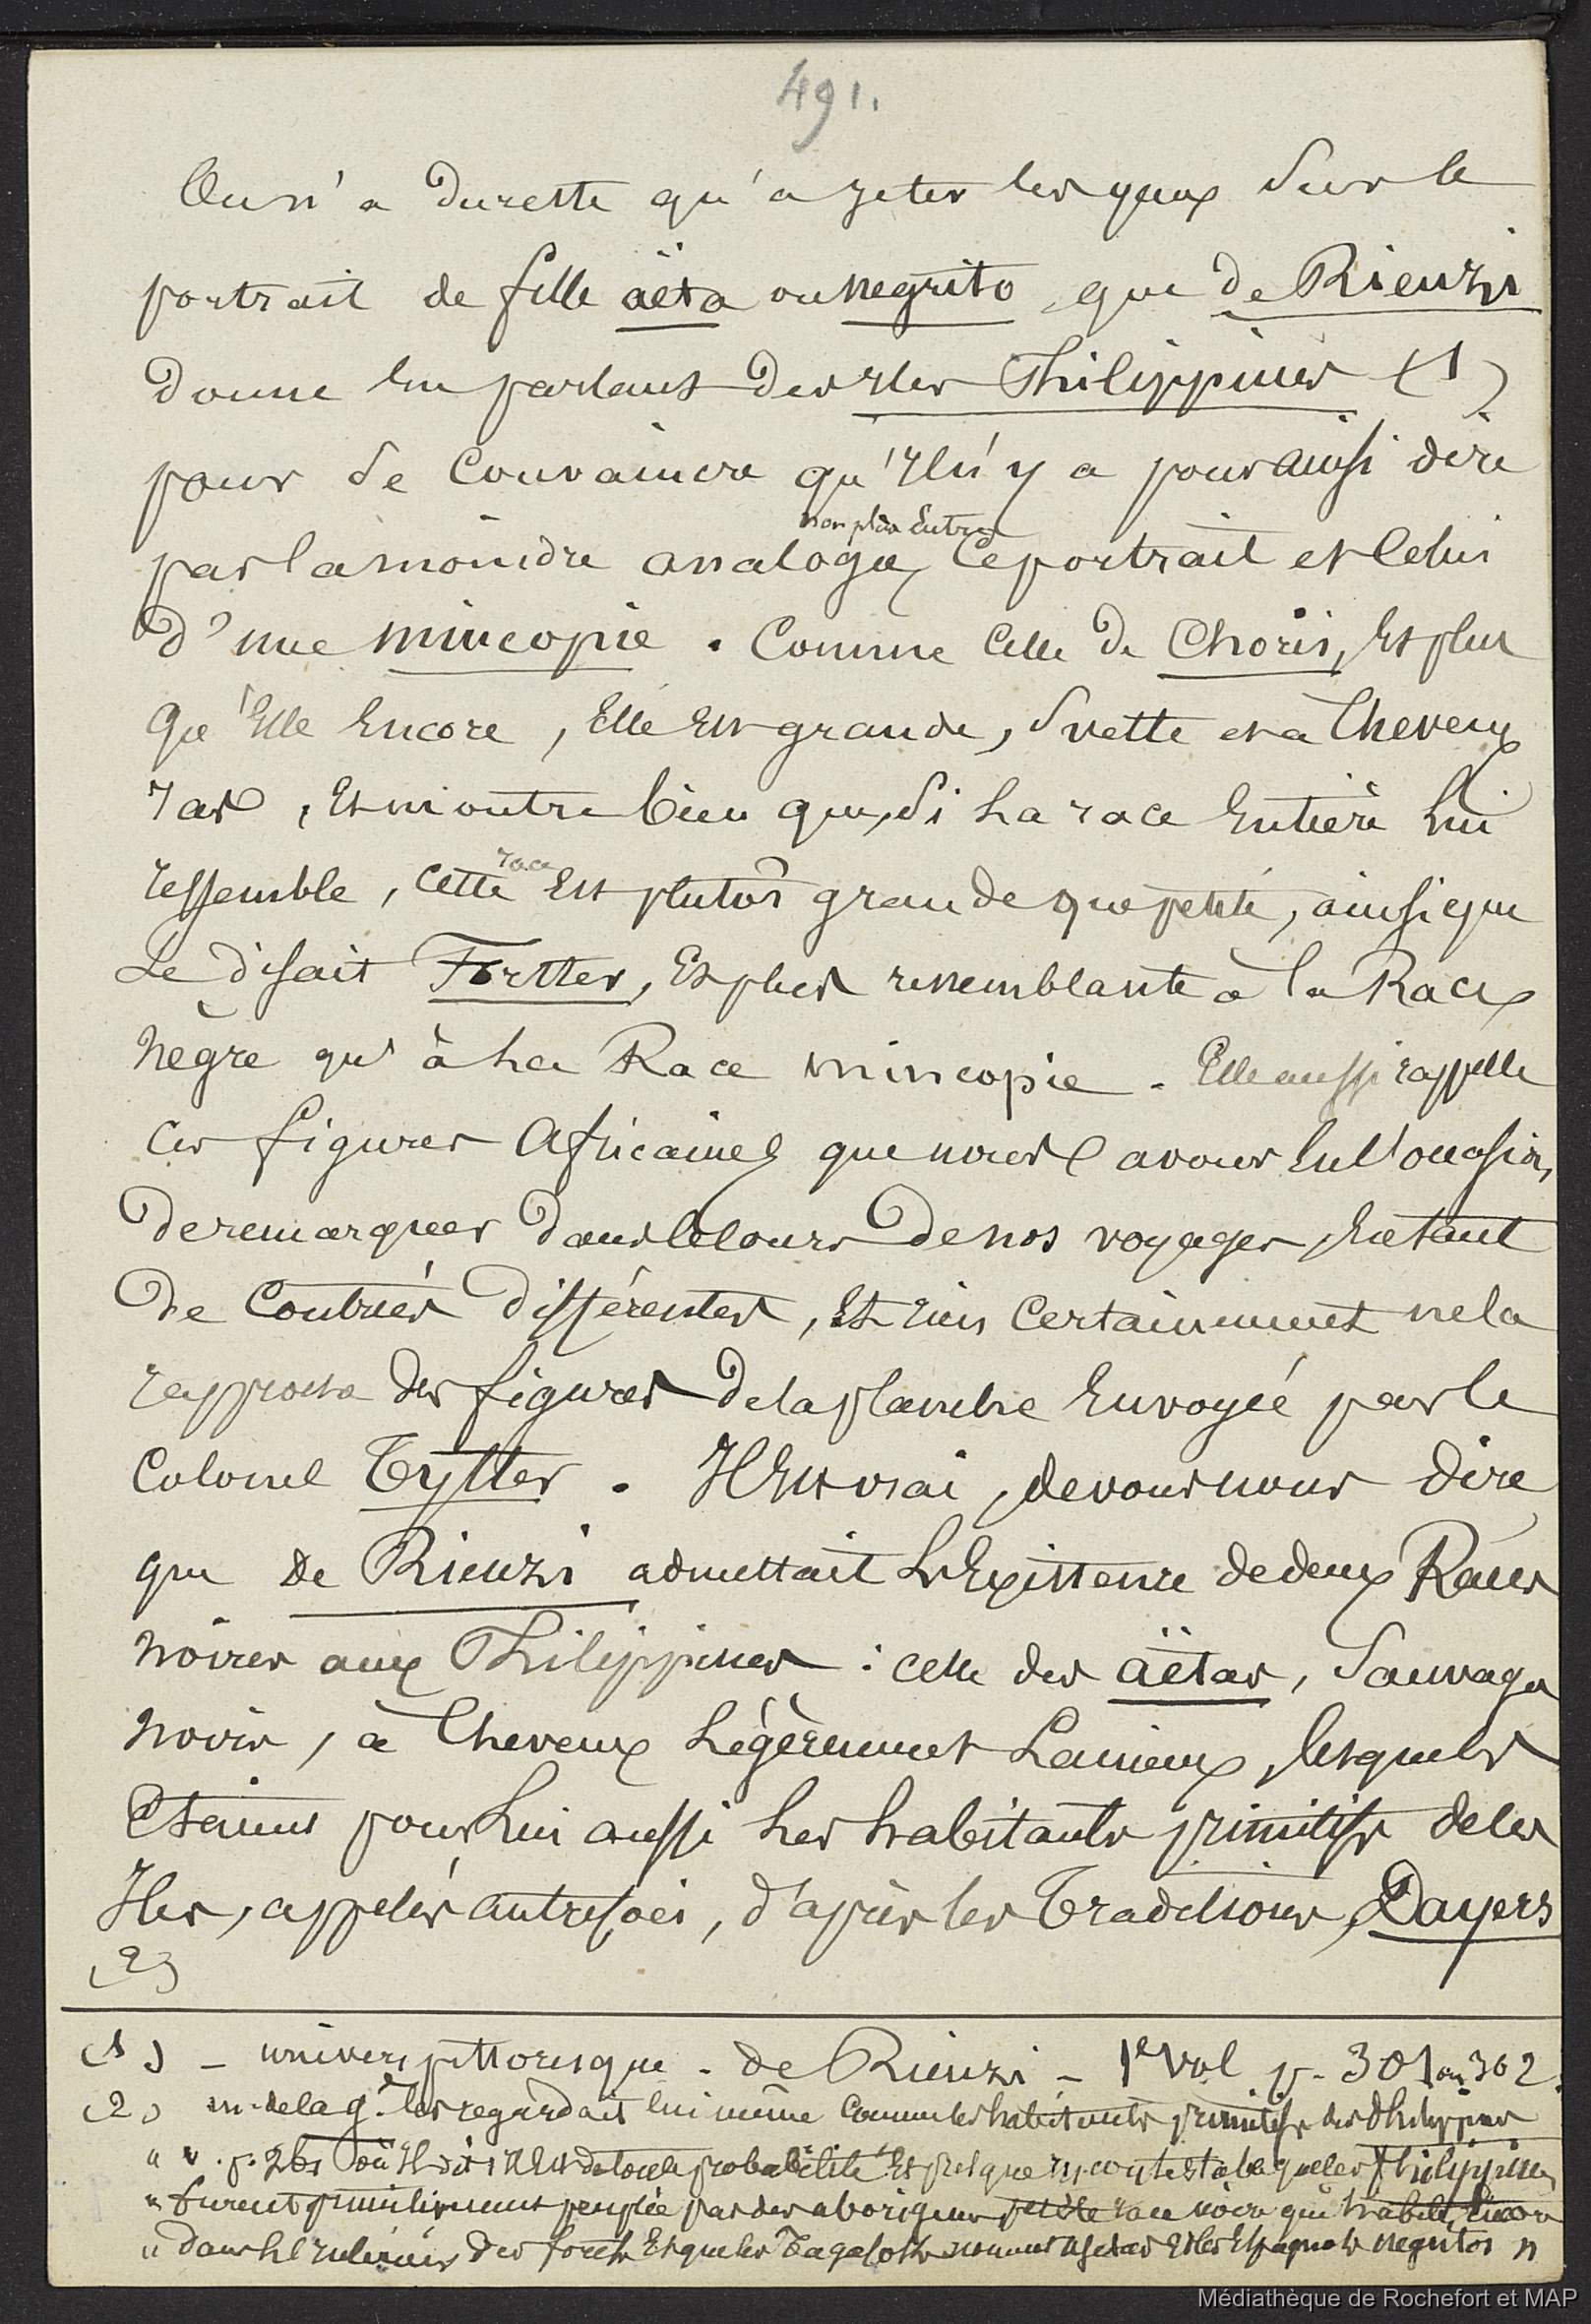 491.
On n'a du reste qu'a jeter les yeux sur le
portrait de fille aëta ou negrito, que de Rienzi
donne en parlant des Iles Philippines (1)
pour se convaincre qu'Il n'y a pour ainsi dire
non plus Entre
pas la moindre analogie, Ce portrait et Celui
d'une mincopie. Comme Celle de Choris, Et plus
qu'Elle Encore, Elle Est grande, svelte et a Cheveux
ras, Et montre bien que, si La race Entière Lui
race
ressemble, cette Est plutôt grande que petite, ainsi que
Le disait Forster, Et plus ressemblante à la Race
nègre qu'à La Race mincopie. Elle aussi rappelle
ces figures Africaines que nous avons Eu l'occasion,
de remarquer dans le Cours de nos voyages, En tant
de Contrées différentes, Et rien Certainement ne la
rapproche des figures de la planche Envoyée par le
Colonel Tytler. Il Est vrai, devons nous dire
que de Rienzi admettait L'Existence de deux Races
noires aux Philippines : celle des aëtas, Sauvages
noirs, à Cheveux Légèrement Laineux, lesquels
Etaient pour Lui aussi Les habitants primitifs de les
Iles, appelés autrefois, d'après les Traditions, Dayers
(2)
(1) - univers pittoresque - de Rienzi - 1e Vol p. 301 ou 302.
(2) m. de la g. Les regardait lui même Comme les habitants primitifs des Philippines
" v. p. 261 où Il dit : Il Est de toute probabilité Et presque incontestable que les Philippines
" furent primitivement peuplées par des aborigènes petite race noire qui habite Encore
" dans L'Intérieur des forêts Et que les Tagalocks nomment Ajetas Et les Espagnols negritos "
Médiathèque de Rochefort et MAP